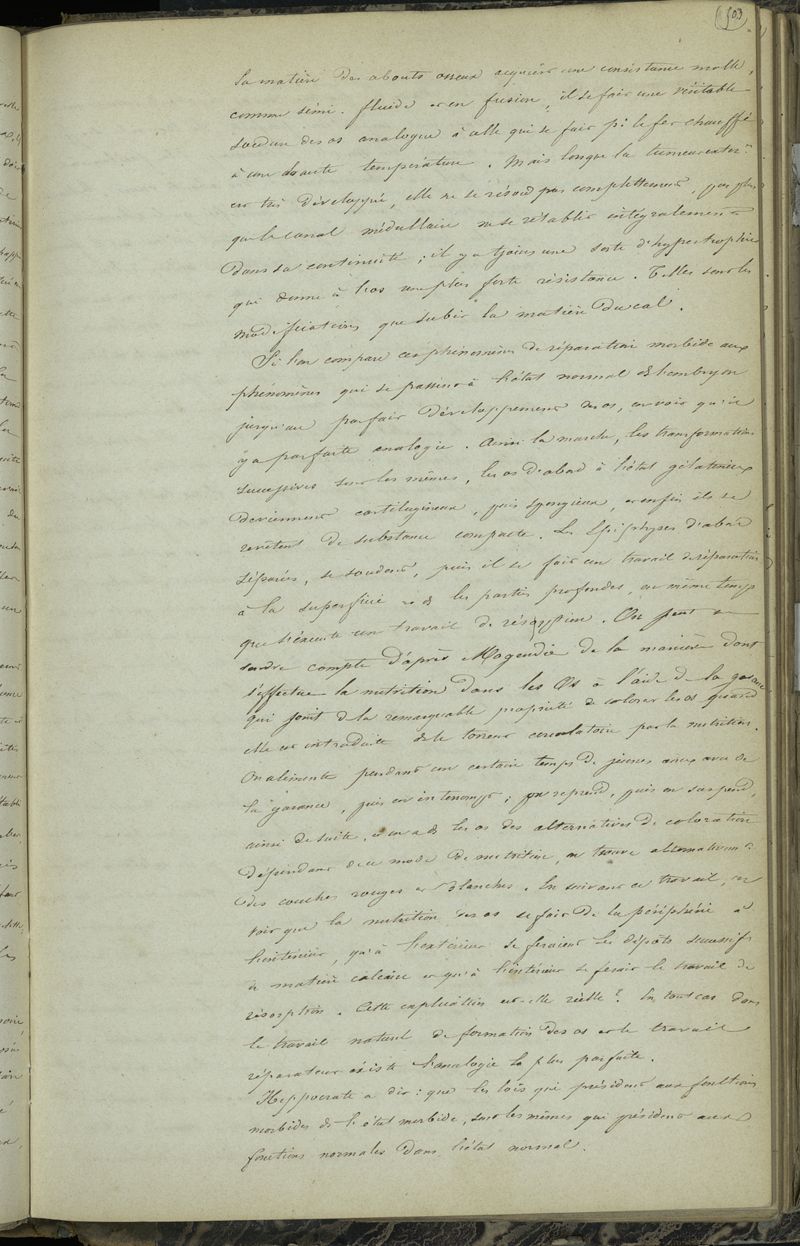 103
la matière des abouts osseux acquiert une consistance molle,
comme sémi-fluide et en fusion, il se fait une véritable
soudure des os analogue à celle qui se fait pr le fer chauffé
à une haute température. Mais lorsque la tumeur exter.re
est très développée, elle ne se résoud pas complettement, pas plus
que le canal médullaire ne se rétablit intégralement
dans sa continuité ; il y a tjours une sorte d'hypertrophie
qui donne à l'os une plus forte résistance. Telles sont les
modifications que subit la matière du cal.
Si l'on compare ces phénomènes de réparation morbide aux
phénomènes qui se passent à l'état normal ds l'embryon
jusqu'au parfait développement des os, on voit qu'il
y a parfaite analogie. Ainsi la marche, les transformations
successives sont les mêmes, les os d'abord à l'état gélatineux
deviennent cartilagineux, puis spongieux, et enfin ils se
revêtent de substance compacte. Les Epiphyses d'abord
séparées, se soudent, puis il se fait un travail de réparation
à la superficie et ds les parties profondes, en même temps
que s'exécute un travail de résorption. On peut se
rendre compte d'après Magendie de la manière dont
s'effectue la nutrition dans les Os à l'aide de la garance
qui jouit de la remarquable propriété de colorer les os quand
elle est introduite ds le torrent circulatoire par la nutrition.
On alimente pendant un certain temps de jeunes avec de
la garance, puis on interrompt ; on reprend, puis on suspend,
ainsi de suite, et on a ds les os des alternatives de coloration
dépendant de ce mode de nutrition, on trouve alternativemt
des couches rouges et blanches. En suivant ce travail, on
voit que la nutrition des os se fait de la périphérie à
l'intérieur, qu'à l'extérieur se feraient les dépôts successifs
de matière calcaire et qu'à l'intérieur se ferait le travail de
résorption. Cette explication est-elle réelle ? En tout cas dans
le travail naturel de formation des os et le travail
réparateur existe l'analogie la plus parfaite.
Hippocrate a dit : que les lois qui président aux fonctions
morbides ds l'état morbide, sont les mêmes qui président aux
fonctions normales dans l'état normal.